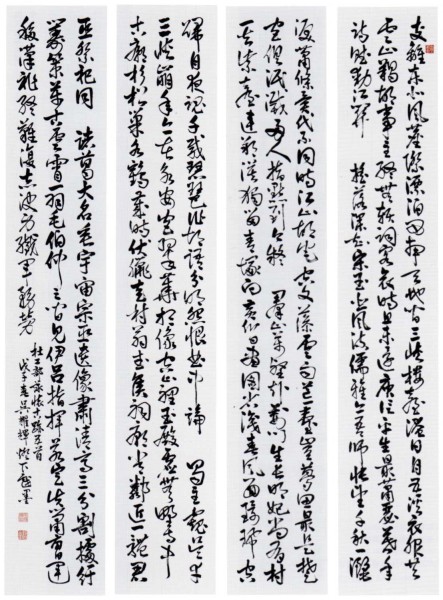 支離東北風塵際漂泊西南天地間三峽樓臺淹日月五溪衣服共
雲山羯胡事主終無賴詞客哀時且未還庾信平生最蕭瑟暮年
詩賦動江關 搖落深知宋玉悲風流儒雅亦吾師悵望千秋一灑
淚蕭條異代不同時江山故宅空文藻雲雨荒臺豈夢思最是楚
宮俱泯滅舟人指點到今疑 群山萬壑赴荊門生長明妃尚有村
一去紫臺連朔漠獨留青塚向黃昏畫圖省識春風面環珮空
歸月夜魂千載琵琶作胡語分明怨恨曲中論 蜀主窺吳幸
三峽崩年亦在永安宮翠華想像空山裏玉殿虛無野寺中
古廟杉松巢水鶴歲時伏臘走村翁武侯祠廟長鄰近一體君
臣祭祀同 諸葛大名垂宇宙宗臣遺像肅清高三分割據紆
籌策萬古雲霄一羽毛伯仲之間見伊呂指揮若定失蕭曹運
移漢祚終難復志決身殲軍務勞
杜工部詠懷古跡五首
戊子春